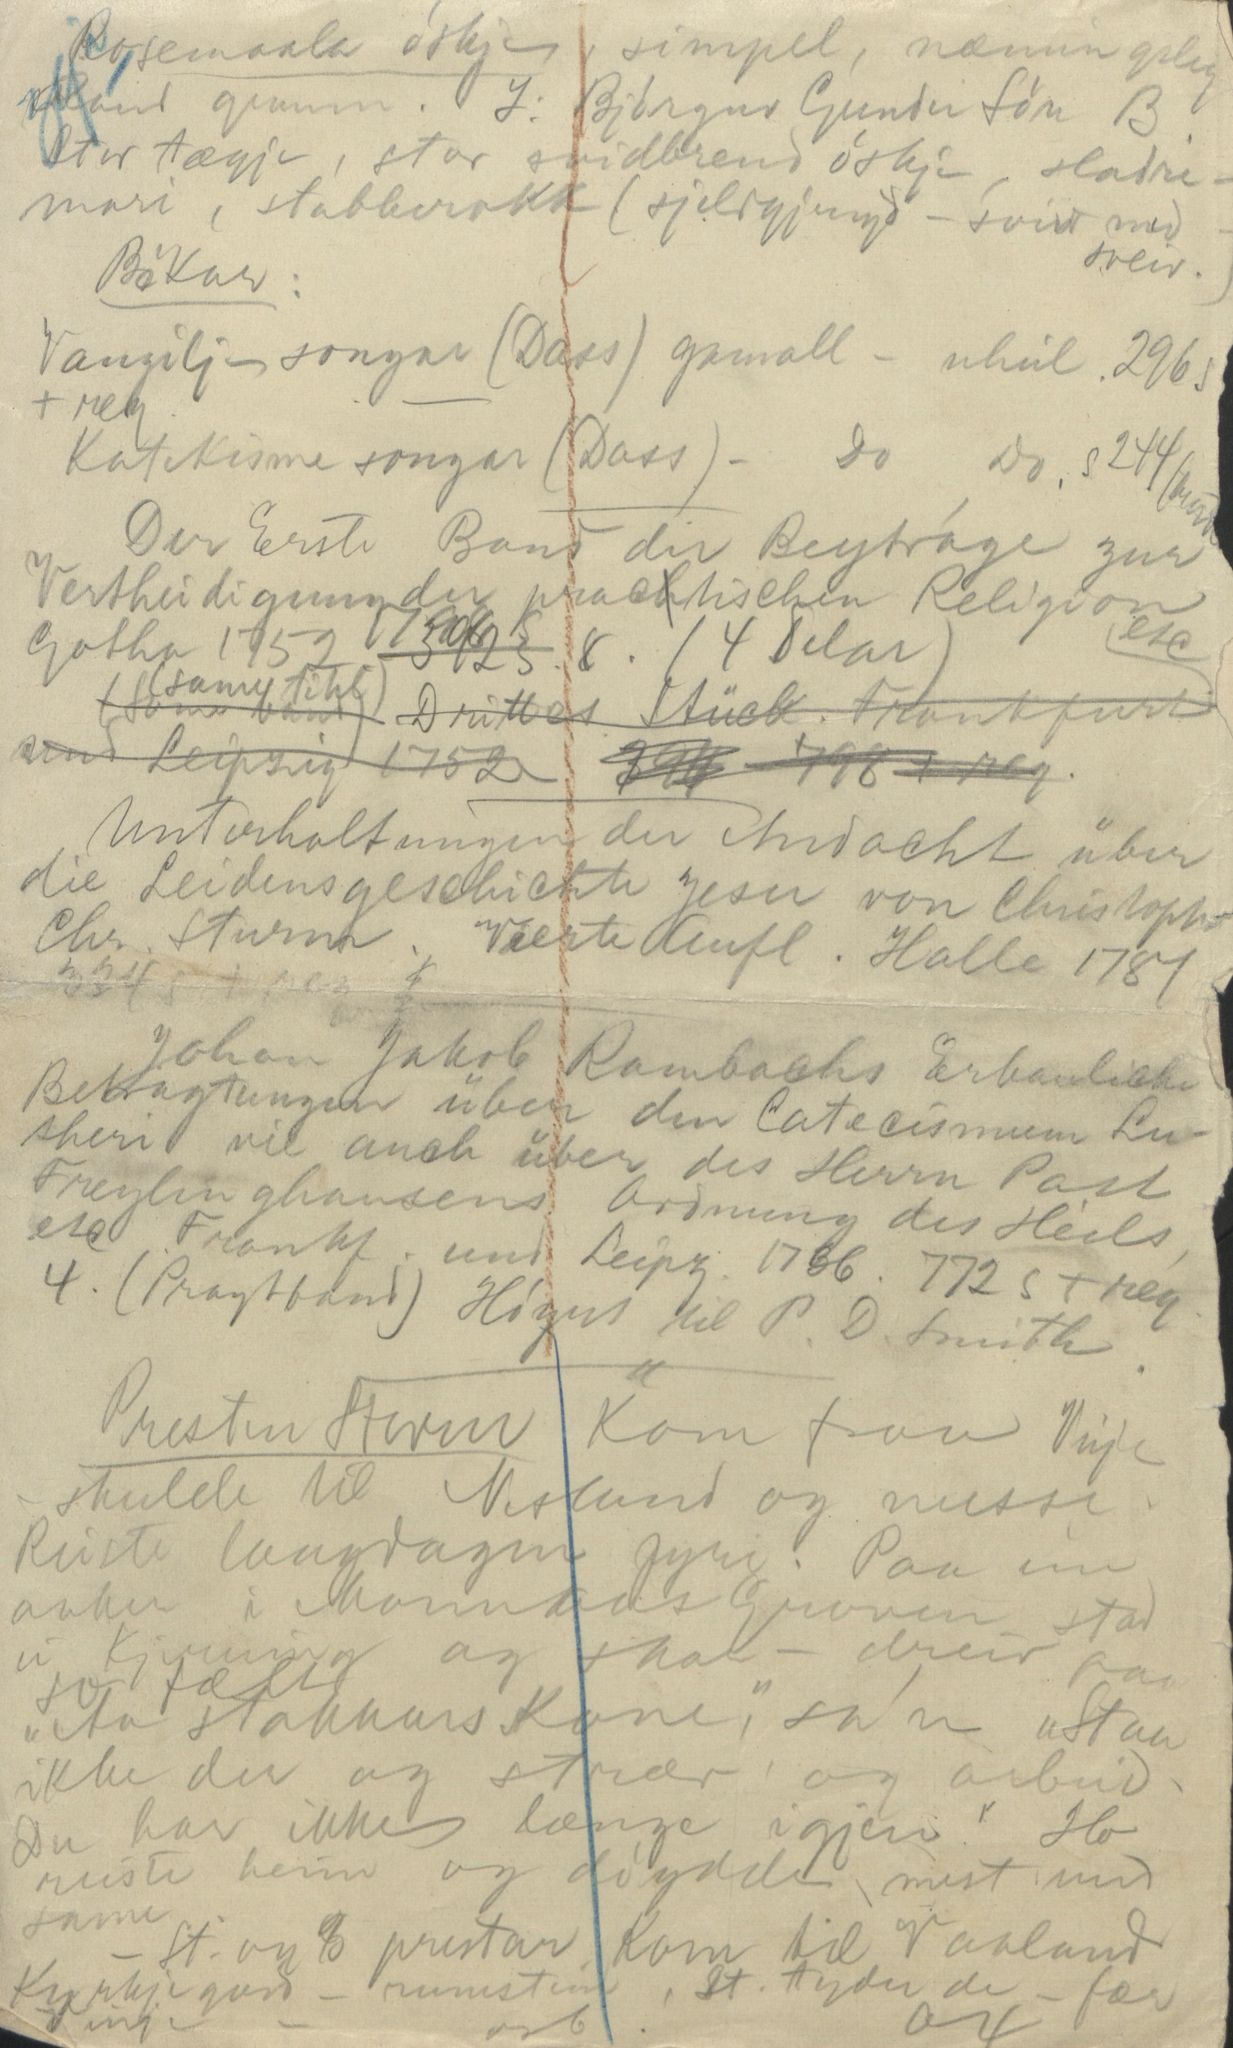 Rosemaala óskje, simpel, næmingsleg
raaud grunn. I: Bjórguv Gunder Són B
Stor tægje, stor svidbrend óskje, sladre-
mari, stabberokk (sjeldgjengd - svid med -
sveiv.)
Bókar:
Vangilje songar (Dass) gamall - uheil. 296 s
+ reg.
Katekisme songar (Dass) - do do, s 244
Der Erste Band der Beyträge zur
Vertheidigung der practischen Religion
etc
Gotha 1752 8. (4 Delar)
(same titel)
Drittes Stück. Frankfurt
und Leipzig 1752 798 + reg.
Unterhaltungen der Andacht über
die Leidensgeschichte Jesu von Christoph
Chr. Sturm. Vierte Aufl. Halle 1781
334 s + reg
Johan Jakob Rambachs Erbauliche
Betragtungen über den Catecismum Lu-
theri vie auch über des Herrn Past
Freylinghausens Ordnung des Heils,
etc Frankf. und Leipz. 1736. 772 s + reg.
4. (Pragtband) Hóyrt til P. D. Smith.
Presten Steren kom fraa Vinje
- skulde til Nesland og messe.
Reiste laugdagen fyri. Paa ein
aaker i Mannaas Grooven stod
ei kjerring og skar - dreiv paa
so fælt
"Aa stakkars Kone," sa'n "Staa
ikke der og stræv og arbeid.
Du har ikke længe igjen." Ho
reiste heim og dóydde mest med
same
- St. og prestar kom til Vaaland
Kyrkjegard - runestein, St. tydde de - før
Vinje -